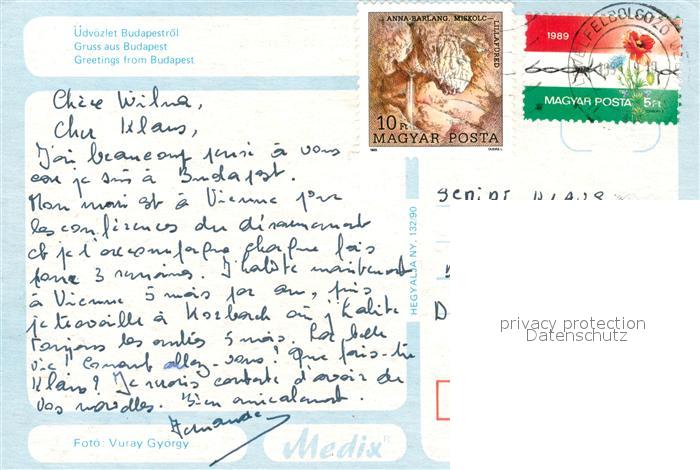 Üdvözlet Budapestről
Gruss aus Budapest
Greetings from Budapest
ANNA-BARLANG, MISKOLC-
LILLAFÜRED
10 Ft
MAGYAR POSTA
1989
MAGYAR POSTA 5Ft
Chère Wilma,
Cher Klaus,
J'ai beaucoup pensé à vous
car je suis à Budapest.
Mon mari est à Vienne pour
les conférences du désarmement
et je l'accompagne chaque fois
pour 3 semaines. J'habite maintenant
à Vienne 5 mois par an, puis
je travaille à Korbach où j'habite
toujours les autres 5 mois. La belle
vie! Comment allez-vous? Que fais-tu
Klaus? Je serais contente d'avoir de
vos nouvelles. Bien amicalement.
HEGYALJA NY. 132.90
KLAUS
D
privacy protection
Datenschutz
Fotó: Vuray György
Medix